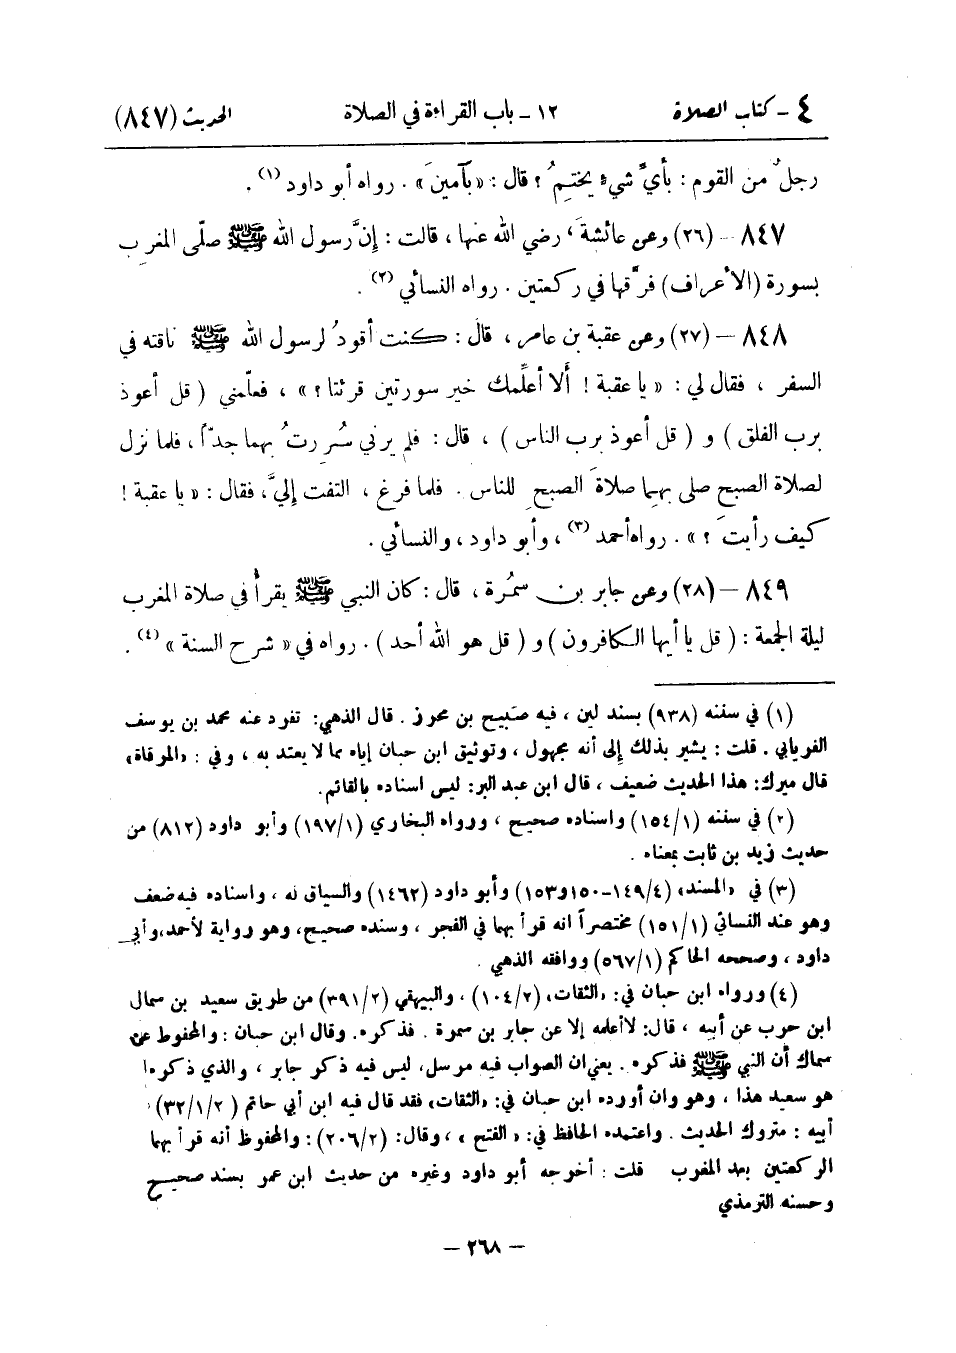 ٤ - كتاب الصلاة ١٢ - باب القراءة في الصلاة الحديث (٨٤٧)
رجلٌ من القوم : بأيِّ شيءٍ يختمُ ؟ قال : «بآمينَ» . رواه أبو داود (١) .
٨٤٧ – (٢٦) وعن عائشةَ ، رضي الله عنها ، قالت : إنَّ رسول الله ﷺ صلّى المغربِ
بسورة (الأعراف) فرَّقها في ركعتين . رواه النسائي (٢) .
٨٤٨ – (٢٧) وعن عقبة بن عامر ، قال : كنت أقودُ لرسول الله ﷺ ناقته في
السفر ، فقال لي : « يا عقبة ! ألا أعلِّمك خير سورتين قرئتا ؟ » ، فعلّمني ( قل أعوذ
برب الفلق ) و ( قل أعوذ برب الناس ) ، قال : فلم يرني سُررتُ بهما جدّاً ، فلما نزل
لصلاة الصبح صلى بهما صلاةَ الصبحِ للناس . فلما فرغ ، التفت إليَّ، فقال : « يا عقبة !
كيف رأيتَ ؟ » . رواه أحمد (٣) ، وأبو داود ، والنسائي .
٨٤٩ – (٢٨) وعن جابر بن سمُرة ، قال : كان النبي ﷺ يقرأُ في صلاة المغرب
ليلة الجمعة : ( قل يا أيها الكافرون ) و ( قل هو الله أحد ) . رواه في « شرح السنة » (٤) .
(١) في سننه (٩٣٨) بسند لين ، فيه صَبيح بن محرز . قال الذهبي: تفرد عنه محمد بن يوسف
الفريابي . قلت : يشير بذلك إلى أنه مجهول ، وتوثيق ابن حبان إياه مما لا يعتد به ، وفي : «المرقاة»
قال ميرك: هذا الحديث ضعيف ، قال ابن عبد البر: ليس اسناده بالقائم.
(٢) في سننه (١/١٥٤) واسناده صحيح ، ورواه البخاري (١/١٩٧) وأبو داود (٨١٢) من
حديث زيد بن ثابت بمعناه .
(٣) في «المسند» (٤/١٤٩-١٥٠و١٥٣) وأبو داود (١٤٦٢) والسياق له ، واسناده فيه ضعف
وهو عند النسائي (١/١٥١) مختصراً انه قرأ بهما في الفجر ، وسنده صحيح، وهو رواية لأحمد،وأبي
داود ، وصححه الحاكم (١/٥٦٧) ووافقه الذهبي .
(٤) ورواه ابن حبان في: «الثقات» (٢/١٠٤) ، والبيهقي (٢/٣٩١) من طريق سعيد بن سمال
ابن حرب عن أبيه ، قال: لا أعلمه إلا عن جابر بن سمرة . فذكره. وقال ابن حبان : والمحفوظ عن
سماك أن النبي ﷺ فذكره . يعني ان الصواب فيه مرسل، ليس فيه ذكر جابر ، والذي ذكره
هو سعيد هذا ، وهو وان أورده ابن حبان في: «الثقات» فقد قال فيه ابن أبي حاتم ( ٢/١/٣٢)
أبيه : متروك الحديث . واعتمده الحافظ في: « الفتح » ، وقال: (٢/٢٠٦) : والمحفوظ أنه قرأ بهما
الركعتين بعد المغرب قلت : أخرجه أبو داود وغيره من حديث ابن عمر بسند صحيح
وحسنه الترمذي
— ٢٦٨ —